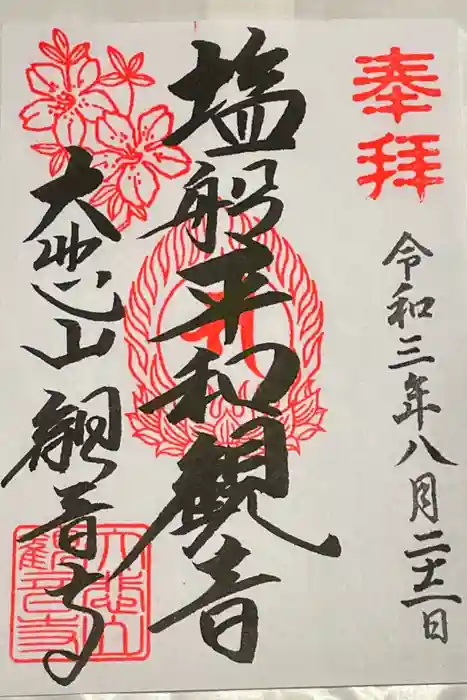 奉拝
令和三年八月二十二日
塩船平和観音
大悲山観音寺